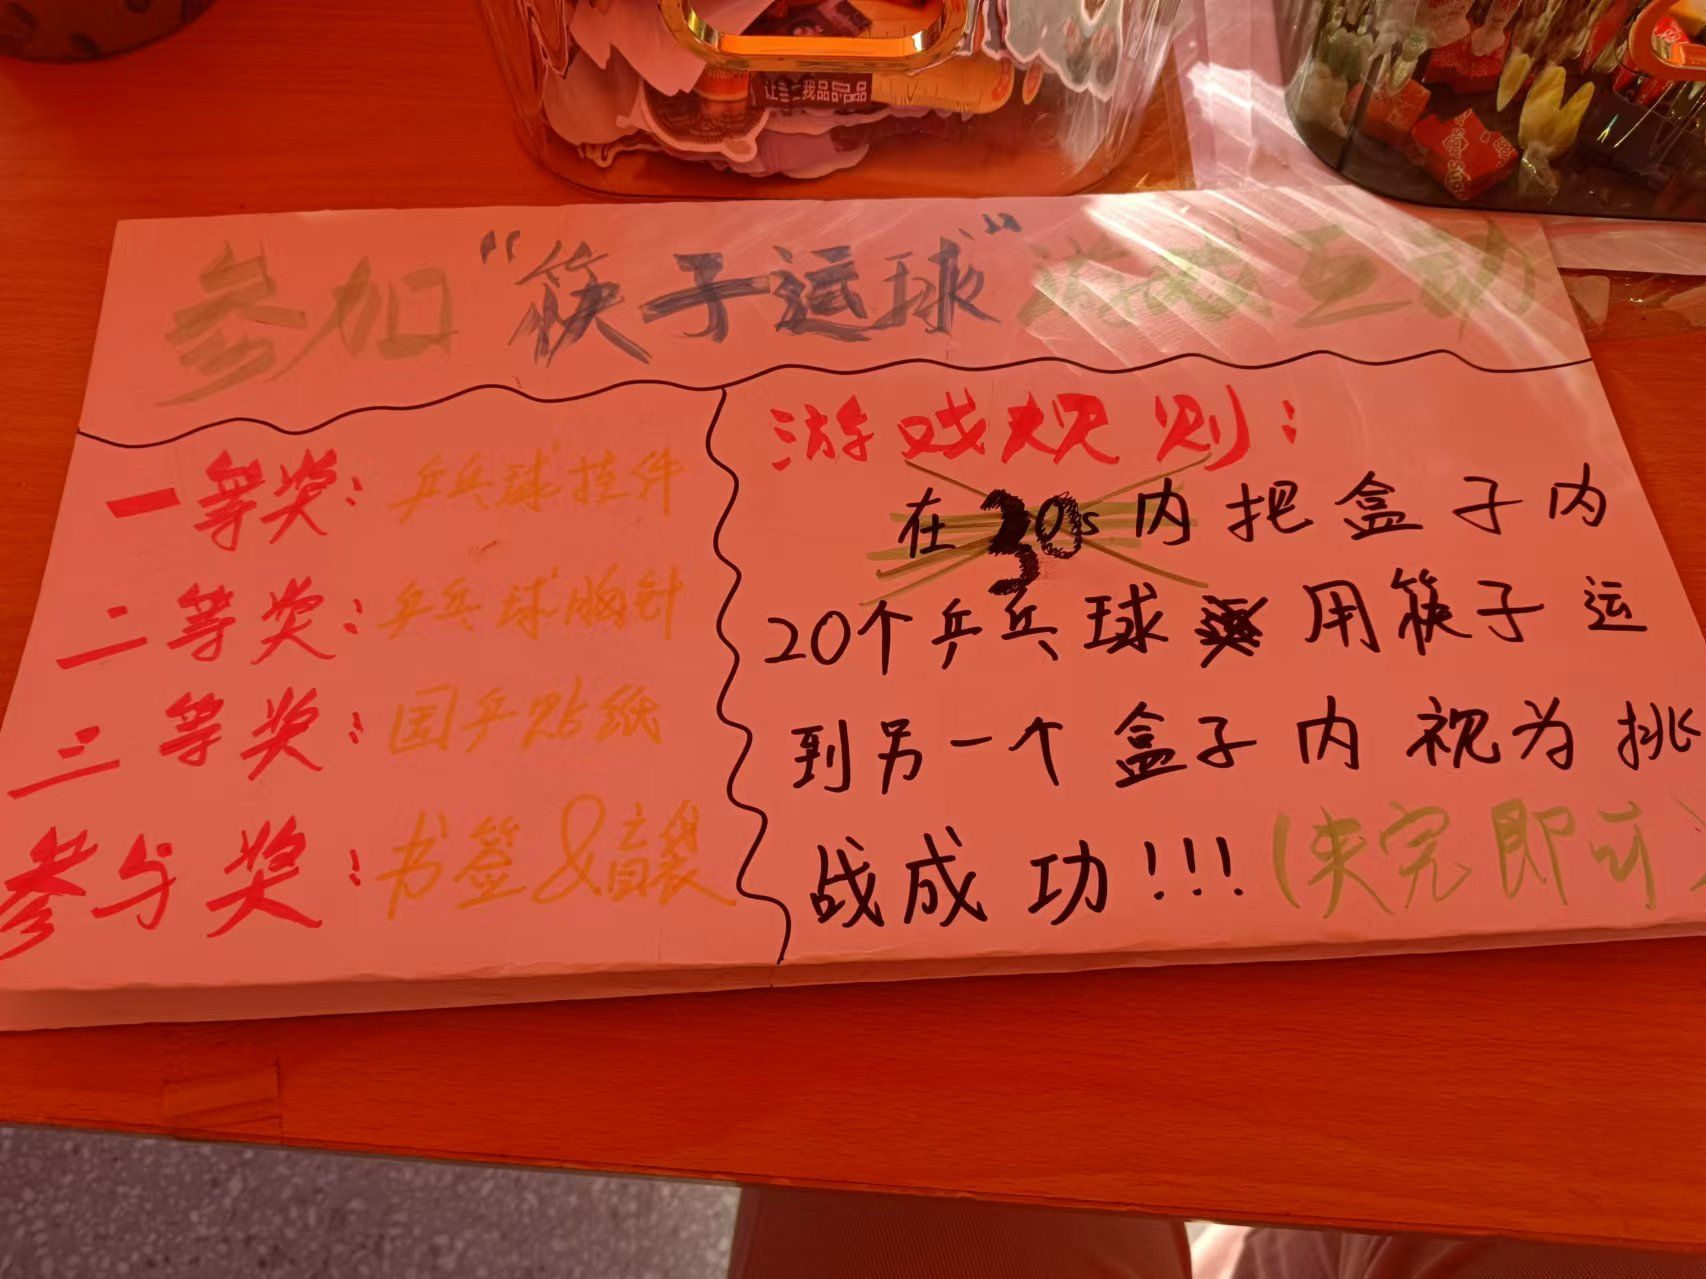 参加“筷子运球”游戏互动
一等奖：乒乓球挂件
二等奖：乒乓球胸针
三等奖：国乒贴纸
参与奖：书签&盲袋
游戏规则：
在30s内把盒子内
20个乒乓球用筷子运
到另一个盒子内视为挑
战成功！！！（夹完即可）